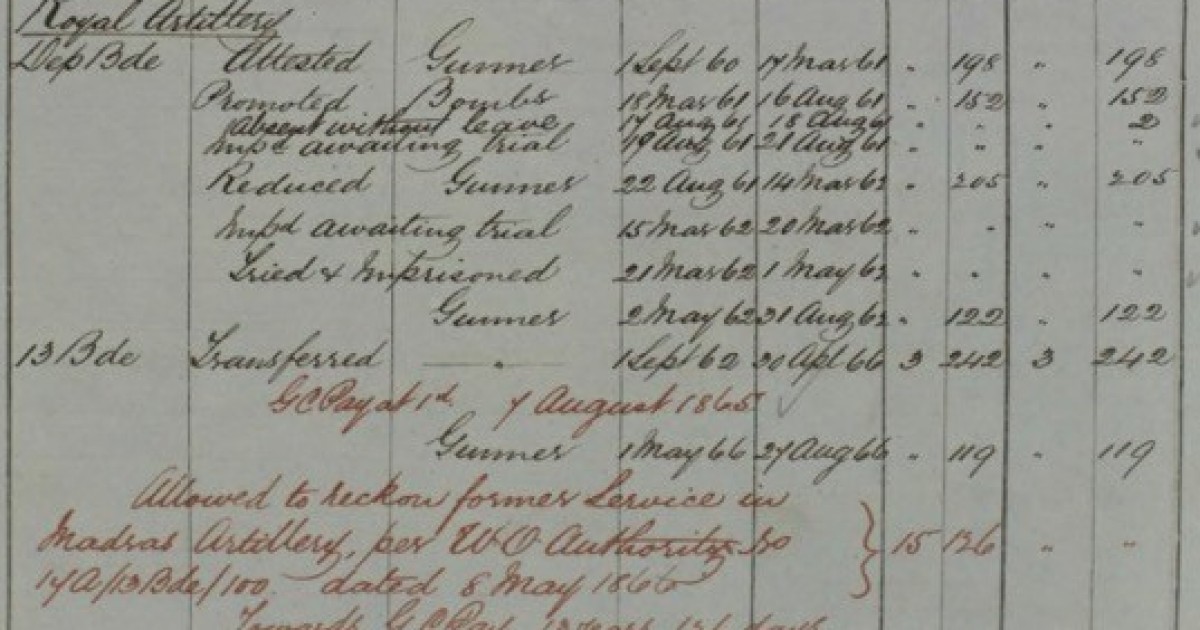 Royal Artillery
Dep Bde Attested Gunner 1 Sept 60 17 Mar 61 " 198 " 198
Promoted Bombr 18 Mar 61 16 Aug 61 " 152 " 152
Absent without leave 17 Aug 61 18 Aug 61 " " " 2
Impd awaiting trial 19 Aug 61 21 Aug 61 " " " "
Reduced Gunner 22 Aug 61 14 Mar 62 " 205 " 205
Impd awaiting trial 15 Mar 62 20 Mar 62 " " " "
Tried & Imprisoned 21 Mar 62 1 May 62 " " " "
Gunner 2 May 62 31 Aug 62 " 122 " 122
13 Bde Transferred " 1 Sept 62 30 Apl 66 3 242 3 242
GC Pay at 1d. 7 August 1865
Gunner 1 May 66 27 Aug 66 " 119 " 119
Allowed to reckon former Service in
Madras Artillery, per WO Authority No } 15 126 " "
17A/13Bde/100 dated 8 May 1866
Towards G.C. Pay years days